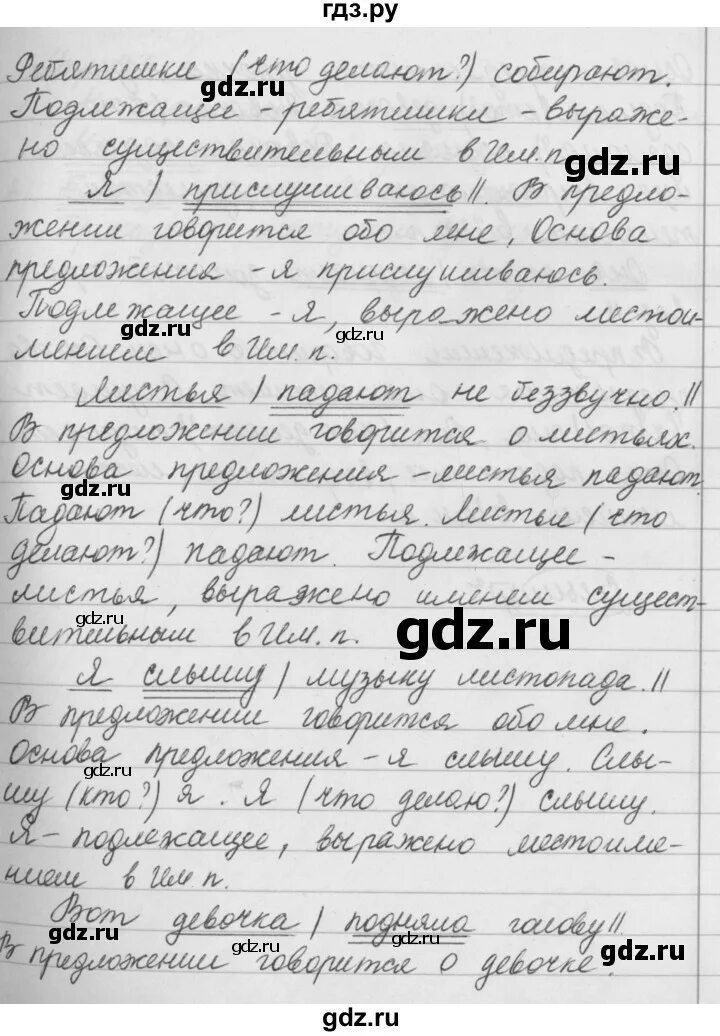 гдз.ру
Ребятишки (что делают?) собирают.
gdz.ru
Подлежащее - ребятишки - выраже-
но существительным в Им.п.
gdz.ru
Я | прислушиваюсь ||. В предло-
gdz.ru
жении говорится обо мне. Основа
предложения - я прислушиваюсь.
Подлежащее - я, выражено местои-
gdz.ru gdz.ru
мением в Им. п.
Листья | падают не беззвучно. ||
gdz.ru
В предложении говорится о листьях.
Основа предложения - листья падают.
gdz.ru
Падают (что?) листья. Листья (что
gdz.ru
делают?) падают. Подлежащее -
листья, выражено именем сущест-
gdz.ru
вительным в Им. п.
gdz.ru
Я слышу | музыку листопада. ||
gdz.ru
В предложении говорится обо мне.
Основа предложения - я слышу. Слы-
gdz.ru
шу (кто?) я. Я (что делаю?) слышу.
gdz.ru
Я - подлежащее, выражено местоиме-
нием в Им. п.
gdz.ru
Вот девочка | подняла голову ||
gdz.ru gdz.ru
В предложении говорится о девочке.
gdz.ru
gdz.ru